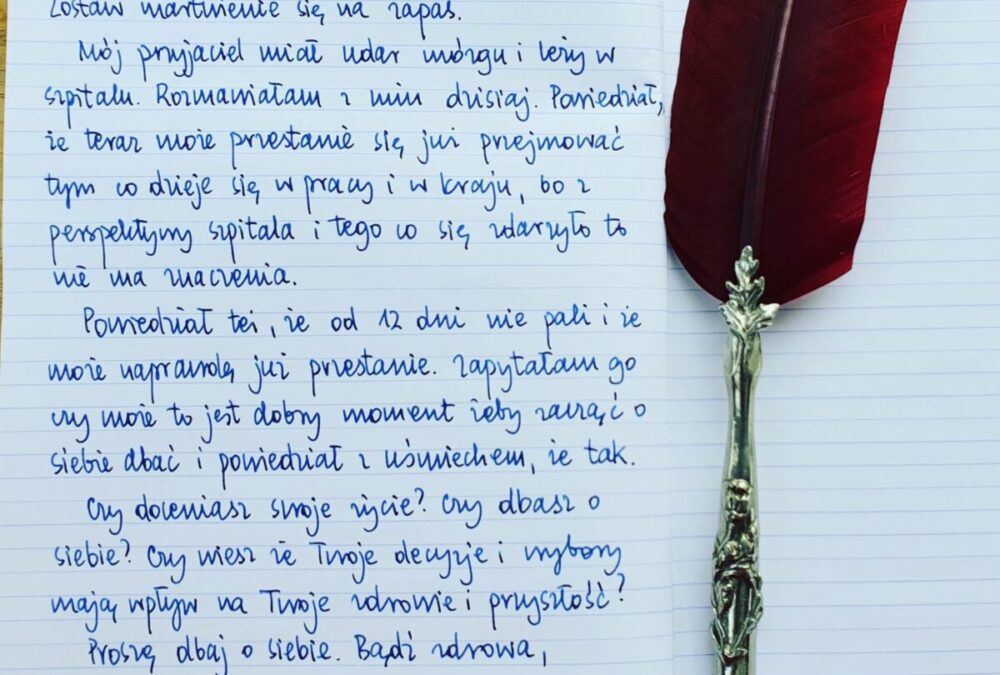 Zostaw martwienie się na zapas.
Mój przyjaciel miał udar mózgu i leży w
szpitalu. Rozmawiałam z nim dzisiaj. Powiedział,
że teraz może przestanie się już przejmować
tym co dzieje się w pracy i w kraju, bo z
perspektywy szpitala i tego co się zdarzyło to
nie ma znaczenia.
Powiedział też, że od 12 dni nie pali i że
może naprawdę już przestanie. Zapytałam go
czy może to jest dobry moment żeby zacząć o
siebie dbać i powiedział z uśmiechem, że tak.
Czy doceniasz swoje życie? Czy dbasz o
siebie? Czy wiesz że Twoje decyzje i wybory
mają wpływ na Twoje zdrowie i przyszłość?
Proszę dbaj o siebie. Bądź zdrowa,